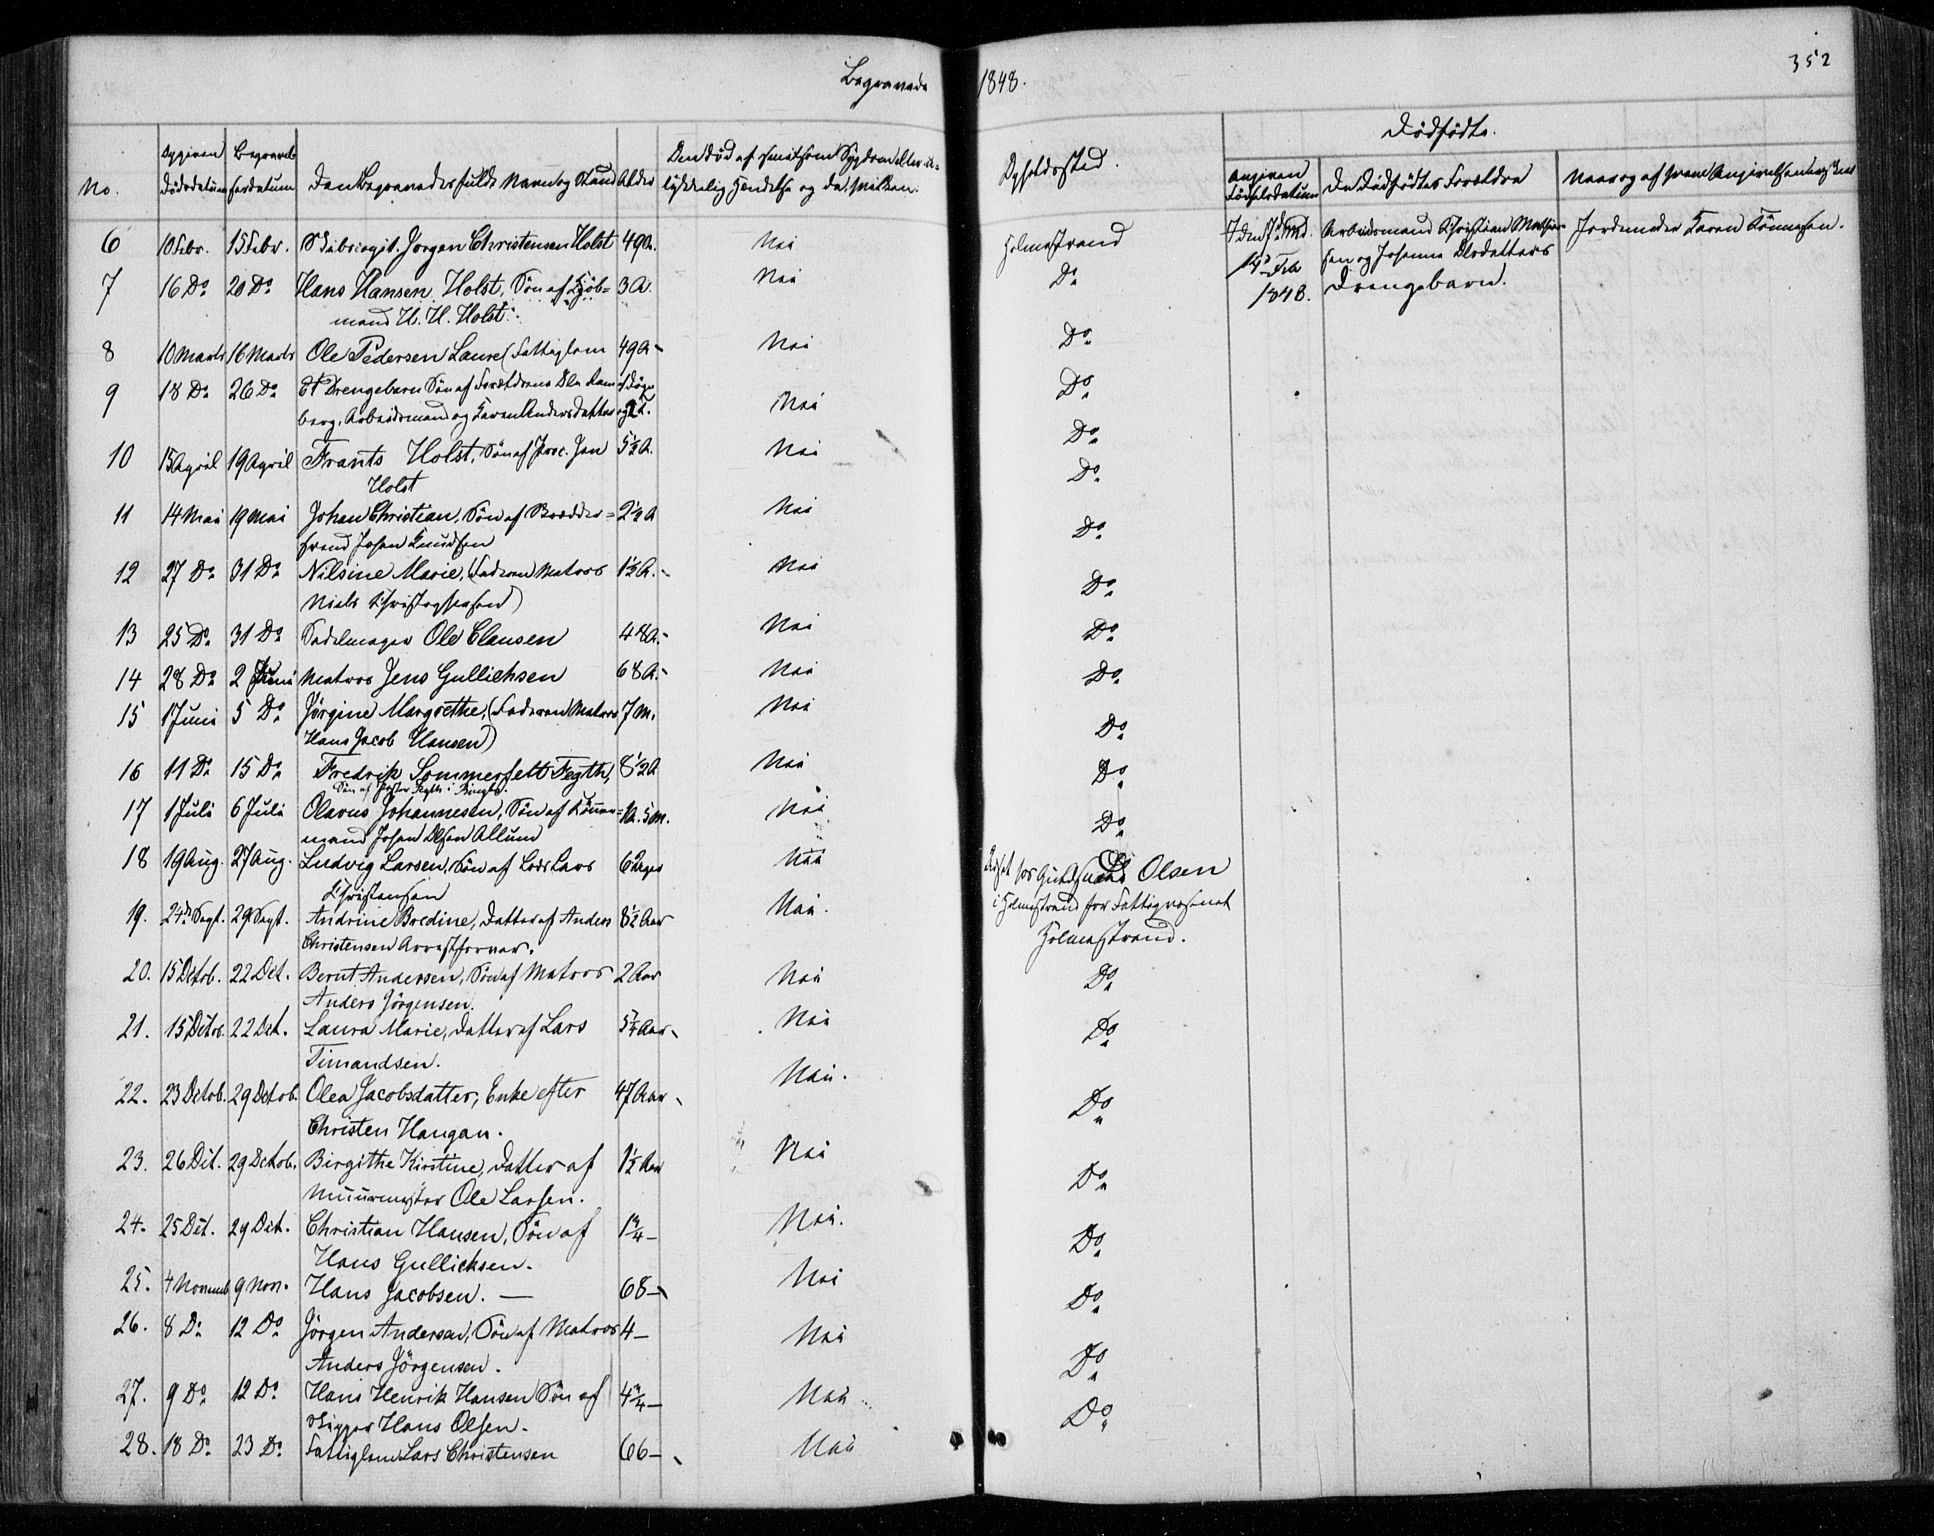 Begravede 1848.
352
No.
Opgiven Dödsdatum
Begravelsesdatum
Den Begravedes fulde Navn og Stand
Alder
Den död af smitsom Sygdom eller ulykkelig Hændelse og da hvilken.
Opholdssted.
Dödfödte.
Angiven Födselsdatum
De Dödfödtes Forældre
Naar og af hvem Angivelsen er skeet
6 10 Febr. 15 Febr. Skibscapt. Jörgen Christensen Holst 49 A. Nei Holmestrand
7 16 Do 20 Do Hans Hansen Holst, Sön af Kjöb= 3 A. Nei Do
mand H. H. Holst.
8 10 Marts 16 Marts Ole Pedersen Laure (Fattiglem 49 A. Nei Do
9 18 Do 26 Do Et Drengebarn Sön af Forældrene Ole Ram Nei Do
berg, Arbeidsmand og Karen Andersdatter
10 15 April 19 April Frants Holst, Sön af Proc. Jan 5½ A. Nei Do
Holst
11 14 Mai 19 Mai Johan Christian, Sön af Brædder= 2½ A Nei Do
vrend Johan Knudsen
12 27 Do 31 Do Nilsine Marie, (Faderen Matros 1½ A. Nei Do
Niels Christophersen)
13 25 Do 31 Do Sadelmager Ole Clausen 48 A. Nei Do
14 28 Do 2 Juni Matros Jens Gullichsen 68 A. Nei Do
15 1 Juni 5 Do Jörgine Margrethe, (Faderen Matros 7 M. Nei Do
Hans Jacob Hansen)
16 11 Do 15 Do Fredrik Sommerfelt Fegth, 8½ A Nei Do
17 1 Juli 6 Juli Olavus Johannesen, Sön af Tömmer= 1 A. 5 M. Nei Do
mand Johan Olsen Allum
18 19 Aug. 27 Aug. Ludvig Larsen, Sön af Lods Lars 6 Dage Nei Do
Christensen
19. 24de Sept. 29 Sept. Andrine Bredine, Datter af Anders 8½ Aar Nei.
Christensen Arrestforvar.
Olsen
i Holmestrand for Fattigvæsenet
Holmestrand.
20. 15 Octob. 22 Oct. Bernt Andersen, Sön af Matros 2 Aar Nei Do
Anders Jörgensen.
21. 15 Octob. 22 Oct. Laura Marie, Datter af Lars Nei Do
Timandsen.
22. 23 Octob. 29 Octob. Olea Jacobsdatter, Enke efter 47 Aar Nei. Do
Christen Haugan.
23. 26 Oct. 29 Octob. Birgithe Kirstine, Datter af 1½ Aar Nei Do
Muurmester Ole Larsen.
24. 25 Oct. 29 Oct. Christian Hansen, Sön af Nei. Do
Hans Gullichsen.
25. 4 Novemb 9 Nov. Hans Jacobsen. — 68 — Nei Do
26. 8 Do 12 Do Jörgen Andersen, Sön af Matros 4 — Nei Do
Anders Jörgensen.
27. 9 Do 12 Do Hans Henrik Hansen Sön af Nei Do
Skipper Hans Olsen.
28. 18 Do 23 Do Fattiglem Lars Christensen 66 — Nei
14de Feb 1848.
Arbeidsmand Christian Mathise
sen og Johanne Olsdatters
Drengebarn.
Jordmoder Karen Tönnesen.